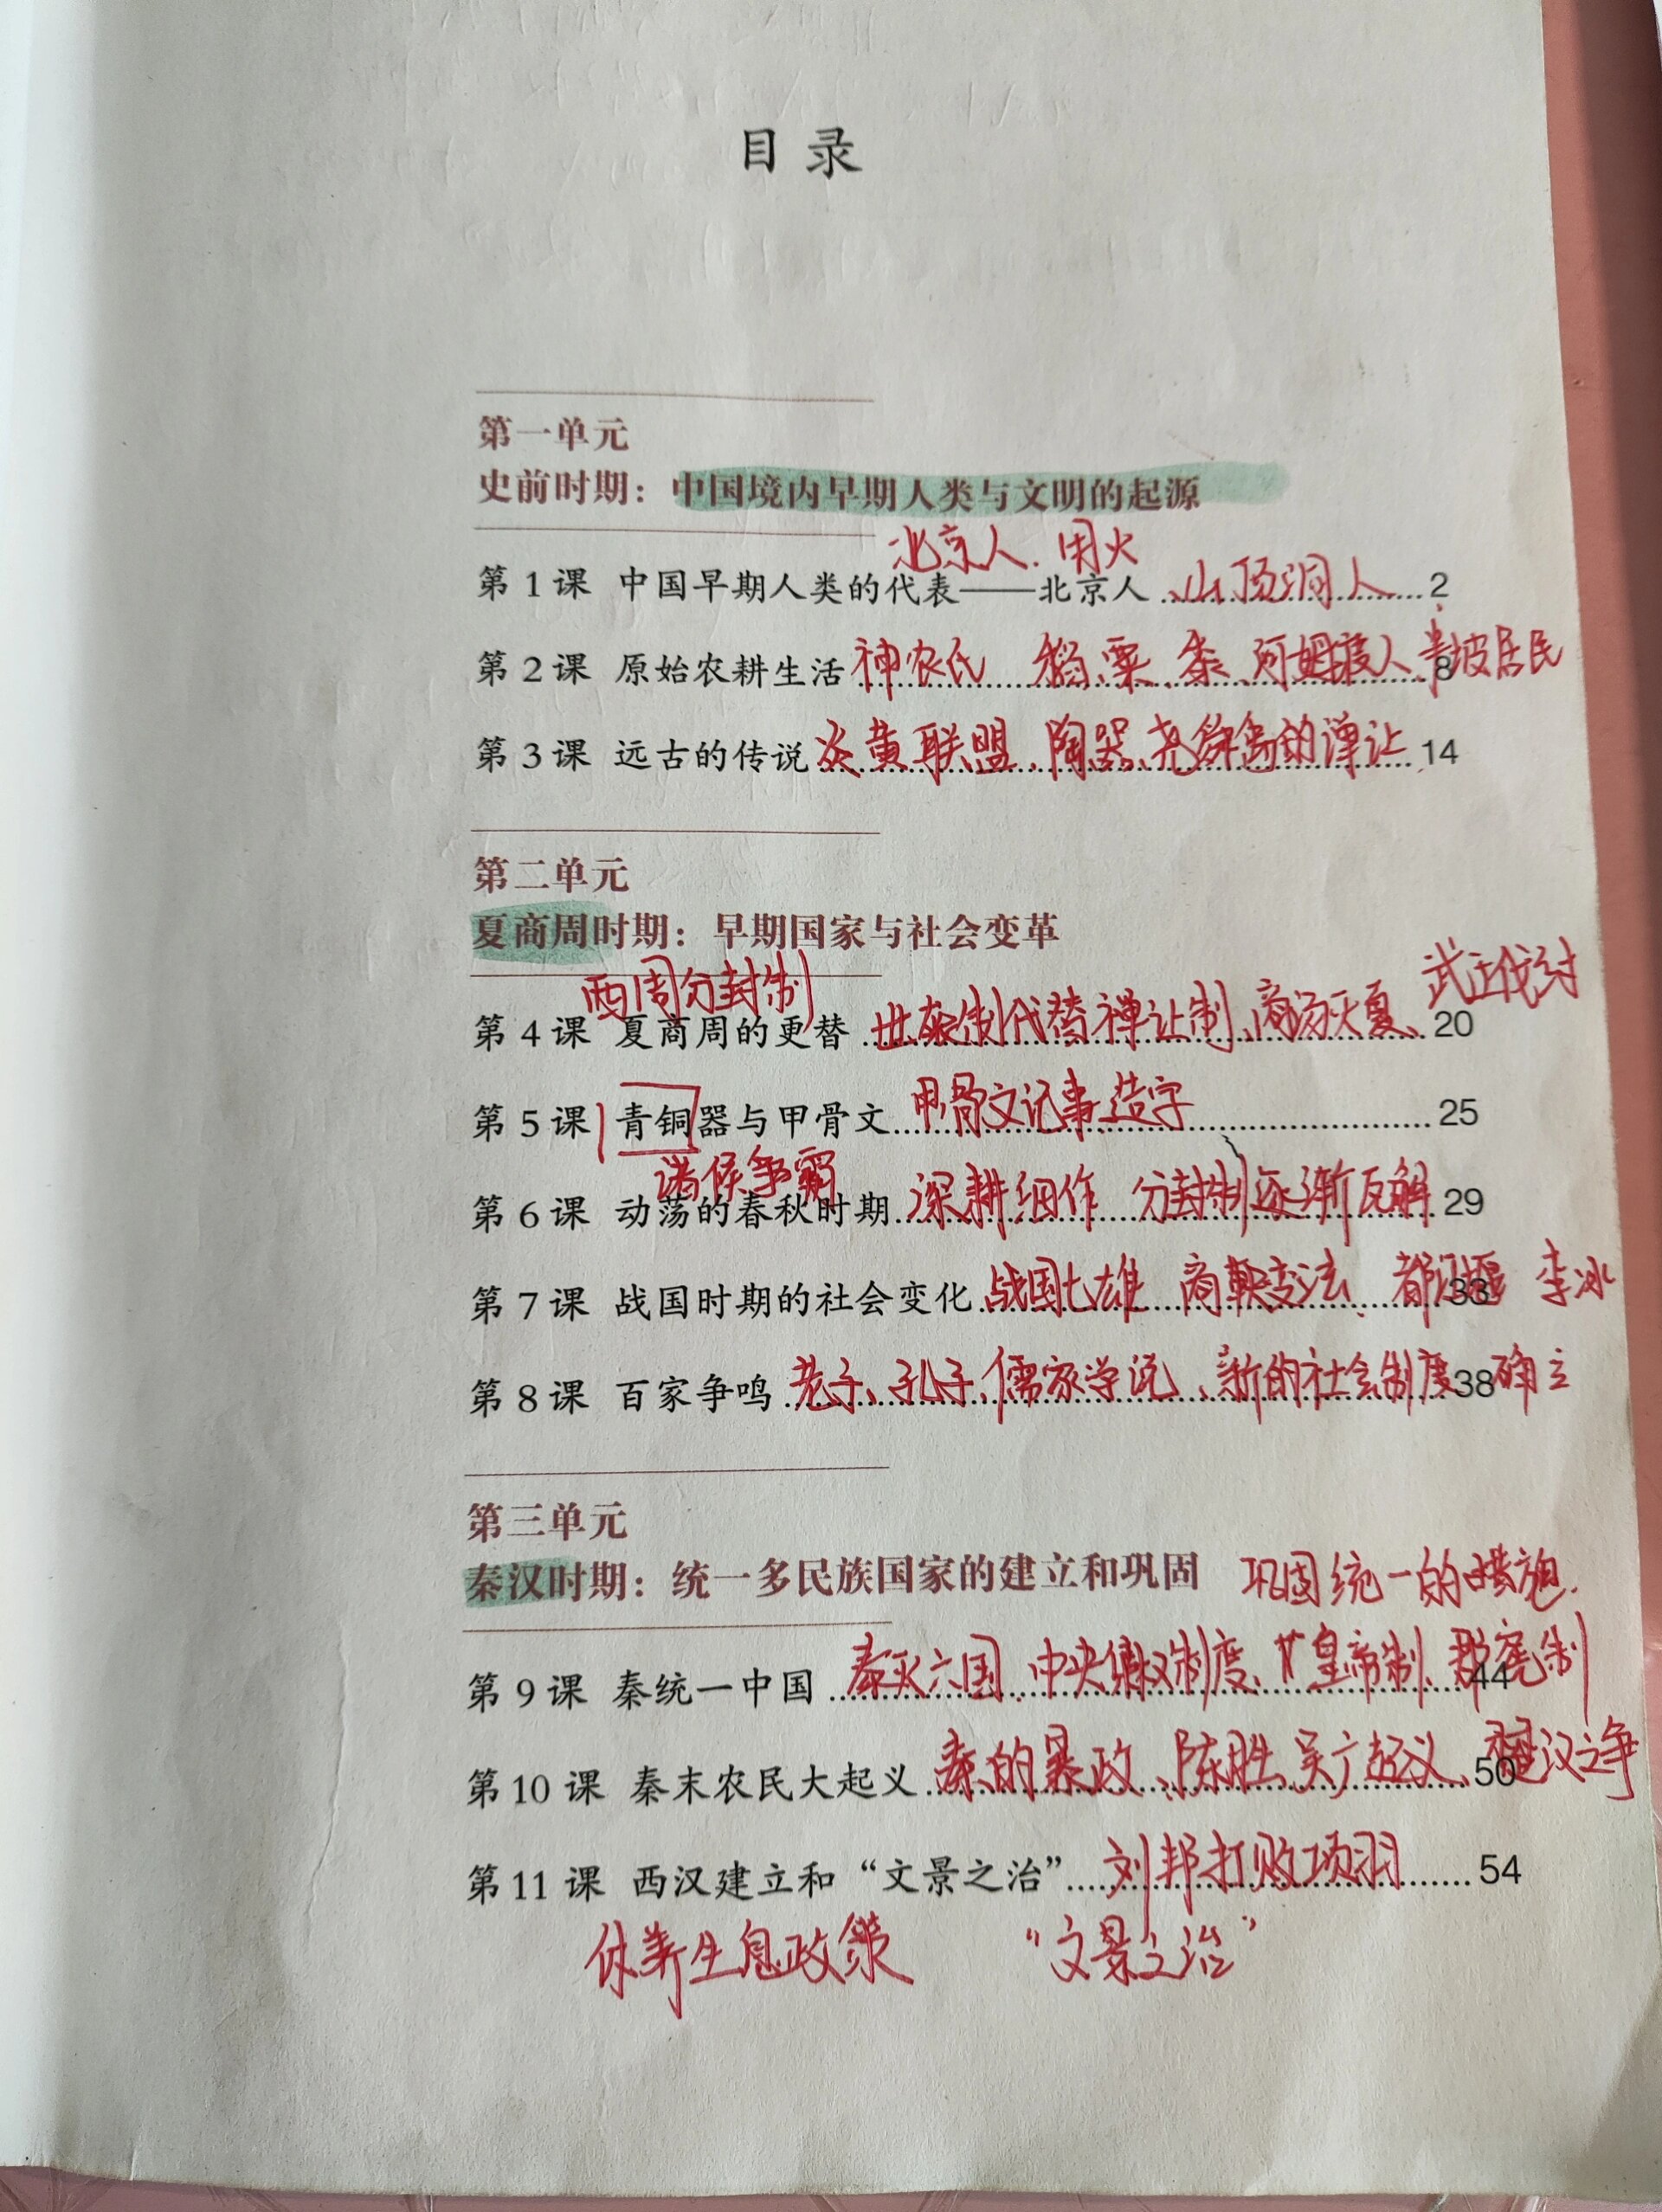 目录
第一单元
史前时期：中国境内早期人类与文明的起源
北京人、用火
第1课 中国早期人类的代表——北京人 山顶洞人 2
第2课 原始农耕生活 神农氏 稻、粟、 河姆渡人 半坡居民 8
第3课 远古的传说 炎黄联盟、陶器、尧舜禹的禅让 14
第二单元
夏商周时期：早期国家与社会变革
西周分封制 武王伐纣
第4课 夏商周的更替 世袭制代替禅让制、商汤灭夏、 20
第5课 青铜器与甲骨文 甲骨文记事 造字 25
诸侯争霸
第6课 动荡的春秋时期 深耕细作 分封制逐渐瓦解 29
第7课 战国时期的社会变化 战国七雄 商鞅变法、都江堰 李冰 33
第8课 百家争鸣 老子、孔子、儒家学说、新的社会制度确立 38
第三单元
秦汉时期：统一多民族国家的建立和巩固 巩固统一的措施.
第9课 秦统一中国 秦灭六国 中央集权制度、皇帝制、郡县制 44
第10课 秦末农民大起义 秦的暴政、陈胜吴广起义、楚汉之争 50
第11课 西汉建立和“文景之治” 刘邦打败项羽 54
休养生息政策 “文景之治”